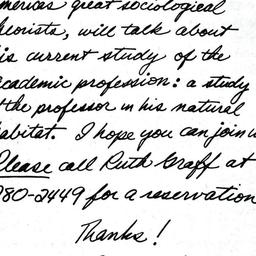 merica's great sociological
heorists, will talk about
is current study of the
cademic profession: a study
f the professor in his natural
abitat. I hope you can join u
Please call Ruth Graff at
980-2449 for a reservation
Thanks!